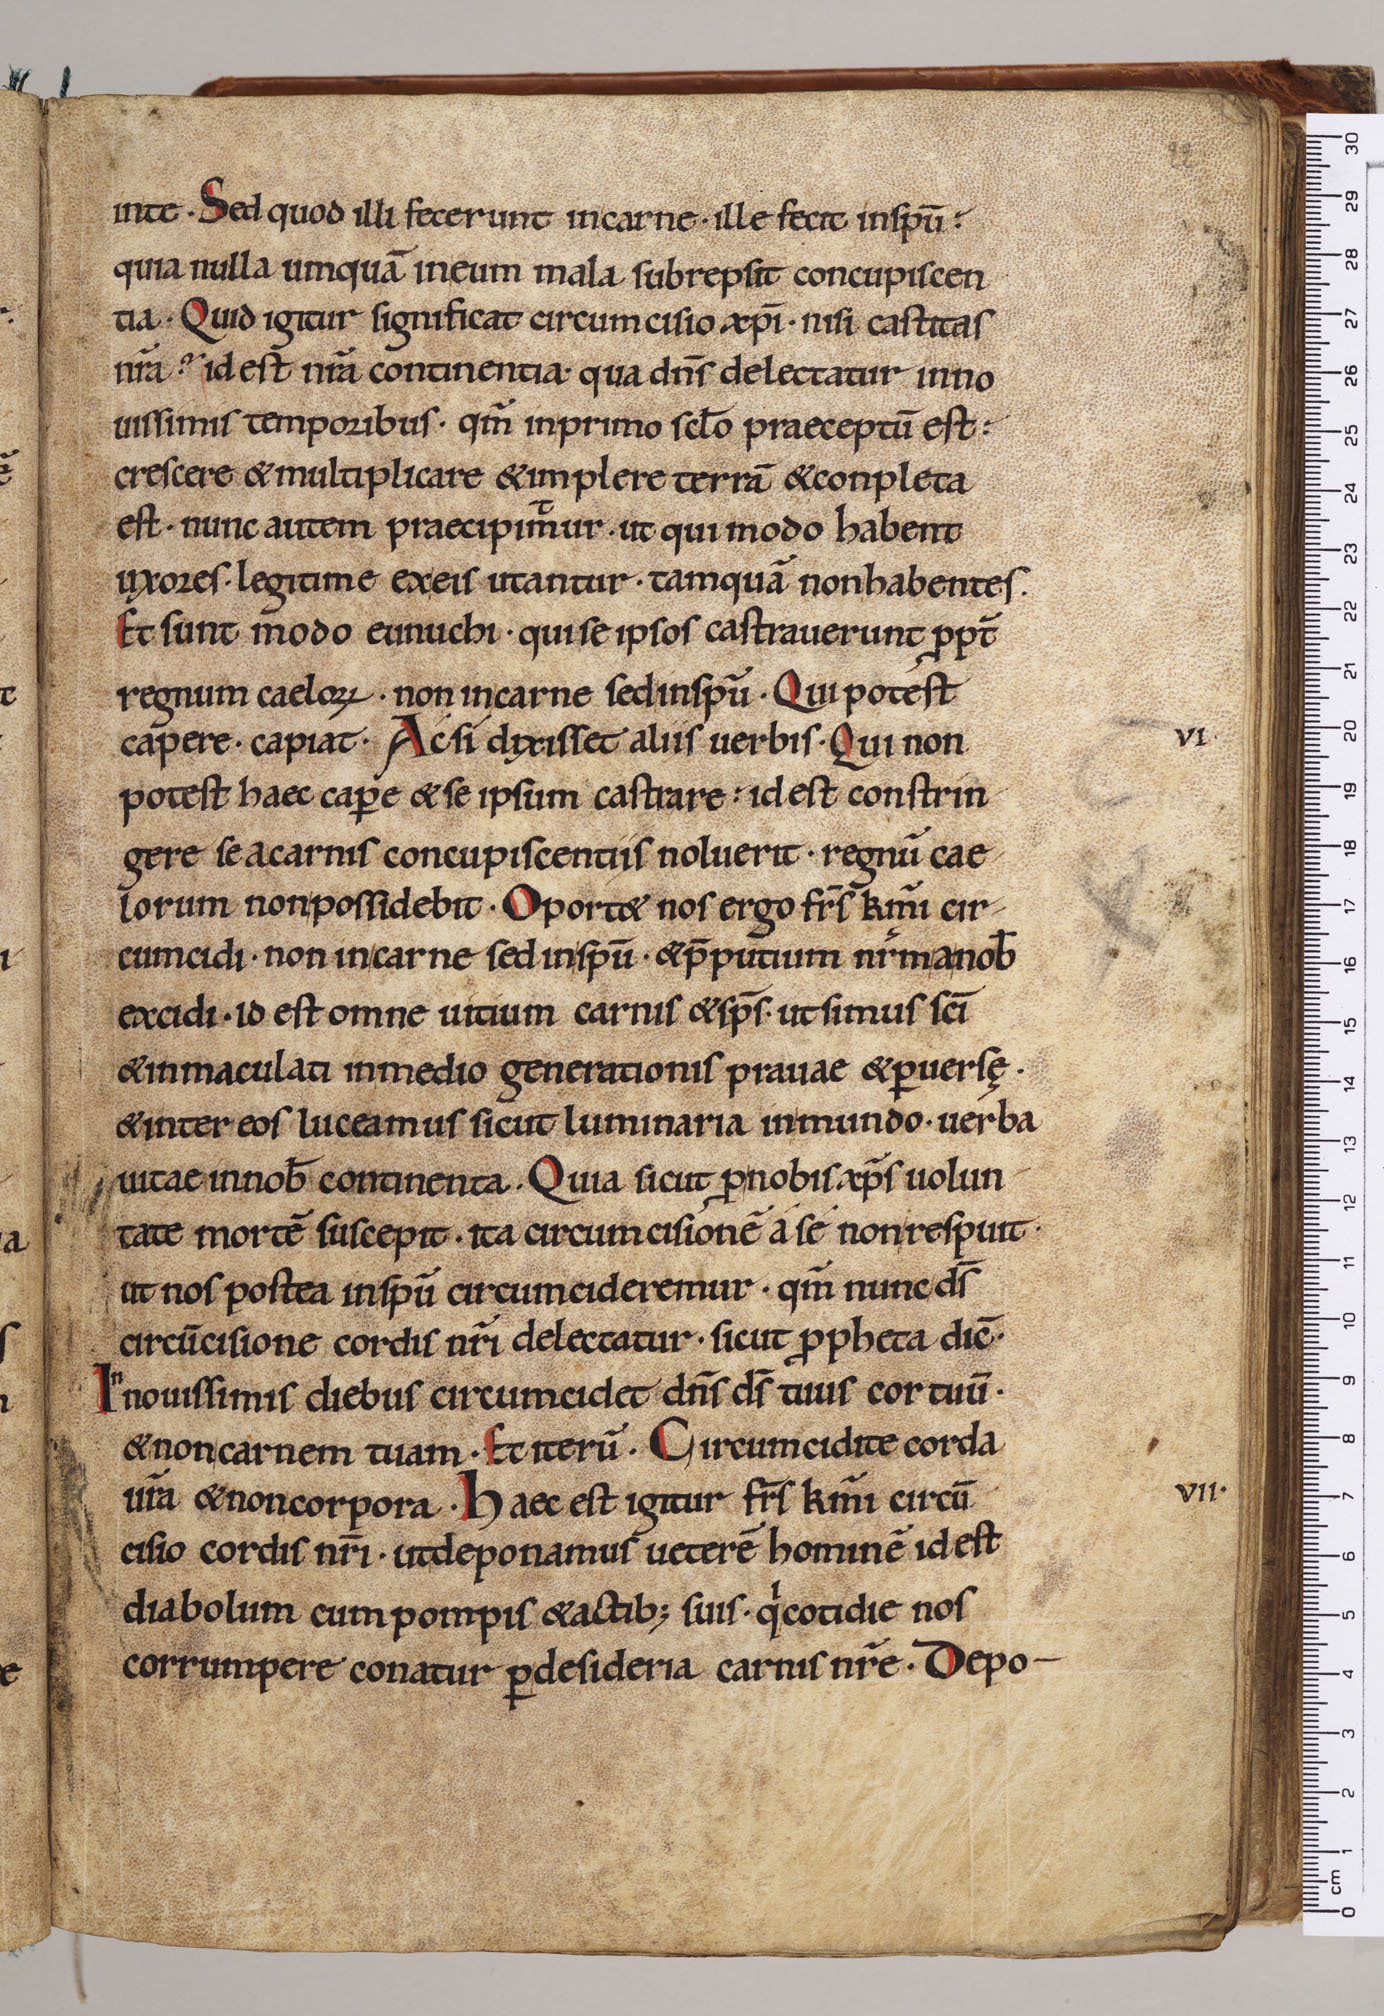 inte · Sed quod illi fecerunt incarne · ille fecit inspū :
quia nulla umquā ineum mala subrepsit concupiscen
tia · Quid igitur significat circumcisio xp̄i · nisi castitas
nr̄a ? id est nr̄a continentia · qua dn̄s delectatur inno
uissimis temporibus · qm̄ inprimo sc̄lo praeceptū est :
crescere &multiplicare &implere terrā &conpleta
est · nunc autem praecipimur · ut qui modo habent
uxores · legitime exeis utantur · tamquā nonhabentes .
Et sunt modo eunuchi · qui se ipsos castrauerunt ꝓpt̄
regnum caeloꝝ · non incarne sedinspū · Qui potest
capere · capiat · Acsi dixisset aliis uerbis · Qui non
potest haec cap̄e & se ipsum castrare : id est constrin
gere se acarnis concupiscentiis noluerit · regnū cae
lorum nonpossidebit · Oport& nos ergo fr̄s km̄i cir
cumcidi · non incarne sed inspū · &p̄putium nr̄m anob̄
excidi · id est omne uitium carnis &sp̄s · ut simus sc̄i
&inmaculati inmedio generationis prauae &ꝑuersę .
&inter eos luceamus sicut luminaria inmundo · uerba
uitae innob̄ continenta . Quia sicut ꝓnobis xp̄s uolun
tate mortē suscepit · ita circumcisionē a se nonrespuit ·
ut nos postea inspū circumcideremur · qm̄ nunc ds̄
circūcisione cordis nr̄i delectatur · sicut ꝓpheta dic̄ ·
In nouissimis diebus circumcidet dn̄s ds̄ tuus cor tuū ·
&noncarnem tuam · Et iterū . Circumcidite corda
ur̄a &noncorpora · Haec est igitur fr̄s km̄i circū
cisio cordis nr̄i · utdeponamus ueterē hominē id est
diabolum cum pompis &actib; suis · qͥcotidie nos
corrumpere conatur ꝑdesideria carnis nr̄e · Depo-
VI·
VII·
0 cm 1 2 3 4 5 6 7 8 9 10 11 12 13 14 15 16 17 18 19 20 21 22 23 24 25 26 27 28 29 30